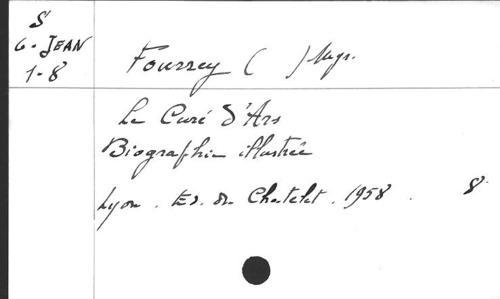 S
G. JEAN
1-8
Fourrey ( ) Mgr.
Le Curé d'Ars
Biographie illustrée
Lyon. Ed. du Chatelet. 1958. 8°